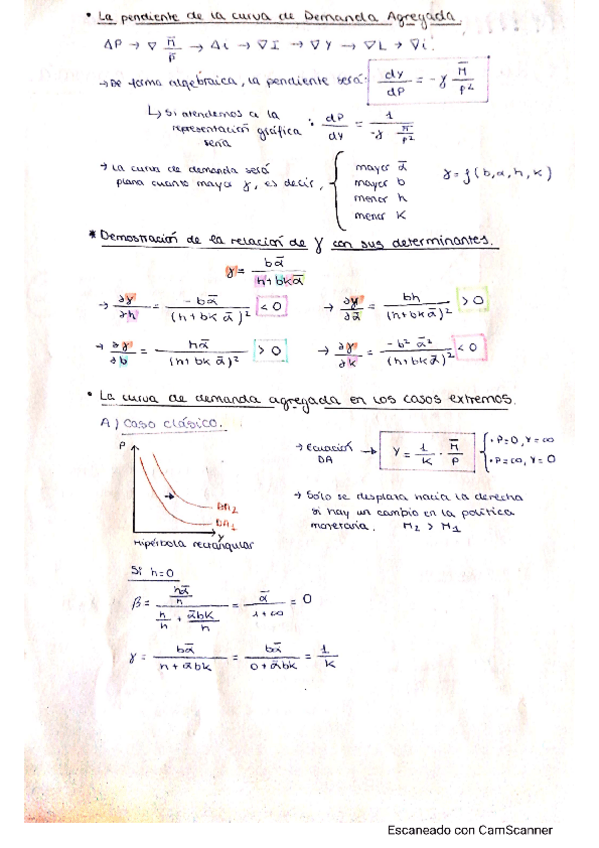 • La pendiente de la curva de Demanda Agregada.
ΔP → ∇ M̄/P̄ → Δi → ∇I → ∇Y → ∇L → ∇i.
→ De forma algebraica, la pendiente será: dy/dP = -γ M̄/P²
↳ Si atendemos a la representación gráfica sería : dP/dy = 1/(-γ M̄/P²)
→ La curva de demanda será plana cuanto mayor γ, es decir, { mayor ᾱ
mayor b
menor h
menor K
γ = f(b, α, h, k)
* Demostración de la relación de γ con sus determinantes.
γ = bᾱ/(h + bkᾱ)
→ ∂γ/∂h = -bᾱ/(h + bkᾱ)² < 0 → ∂γ/∂ᾱ = bh/(h + bkᾱ)² > 0
→ ∂γ/∂b = hᾱ/(h + bkᾱ)² > 0 → ∂γ/∂k = -b²ᾱ²/(h + bkᾱ)² < 0
• La curva de demanda agregada en los casos extremos.
A) Caso clásico.
P
DA₂
DA₁
Y
Hipérbola rectangular
→ Ecuación DA → Y = 1/K · M̄/P { • P=0, Y=∞
• P=∞, Y=0
→ Sólo se desplaza hacia la derecha
si hay un cambio en la política
monetaria. M₂ > M₁
Si h=0
β = (hᾱ/h)/(h/h + ᾱbk/h) = ᾱ/(1+∞) = 0
γ = bᾱ/(h + ᾱbk) = bᾱ/(0 + ᾱbk) = 1/K
Escaneado con CamScanner